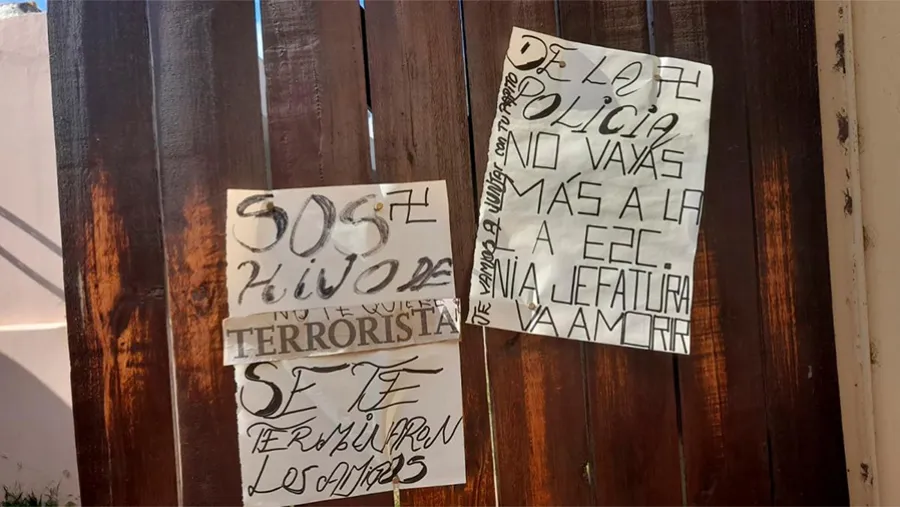 SOS 卍
HIJO DE
NO TE QUIERE
TERRORISTA
SE TE
TERMINARON
LOS AMIGOS
DE LA 卍
POLICIA
NO VAYAS
MÁS A LA
A EZC.
NI A JEFATURA
VA A MORR
TE VAMOS A JUNTAR con TU PAPITO